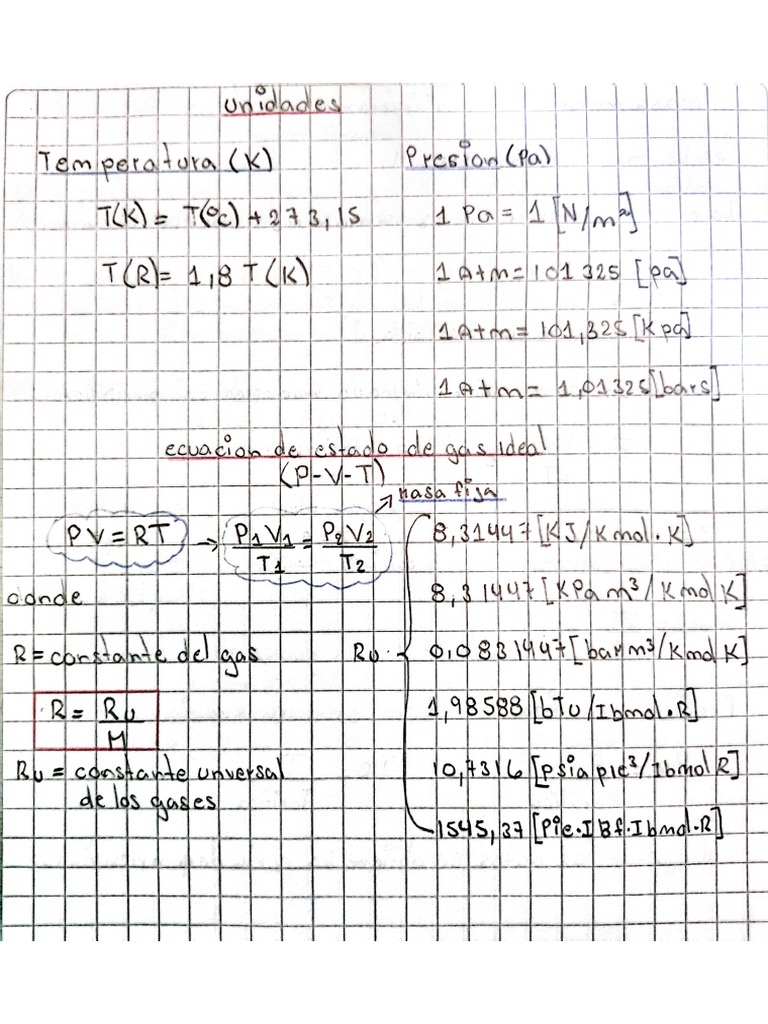 unidades
Temperatura (K)
T(K) = T(°C) + 273,15
T(R) = 1,8 T(K)
Presion (Pa)
1 Pa = 1 [N/m²]
1 Atm = 101 325 [pa]
1 Atm = 101,325 [Kpa]
1 Atm = 1,01325 [bars]
ecuacion de estado de gas ideal
(P-V-T)
masa fija
PV = RT → P1V1/T1 = P2V2/T2
donde
R = constante del gas
R = Ru/M
Ru = constante unversal
de los gases
Ru
8,31447 [KJ/Kmol·K]
8,31447 [KPa m³/Kmol K]
0,0831447 [bar m³/Kmol K]
1,98588 [bTU/Ibmol·R]
10,7316 [psia pie³/Ibmol R]
1545,37 [Pie·IBf·Ibmol·R]